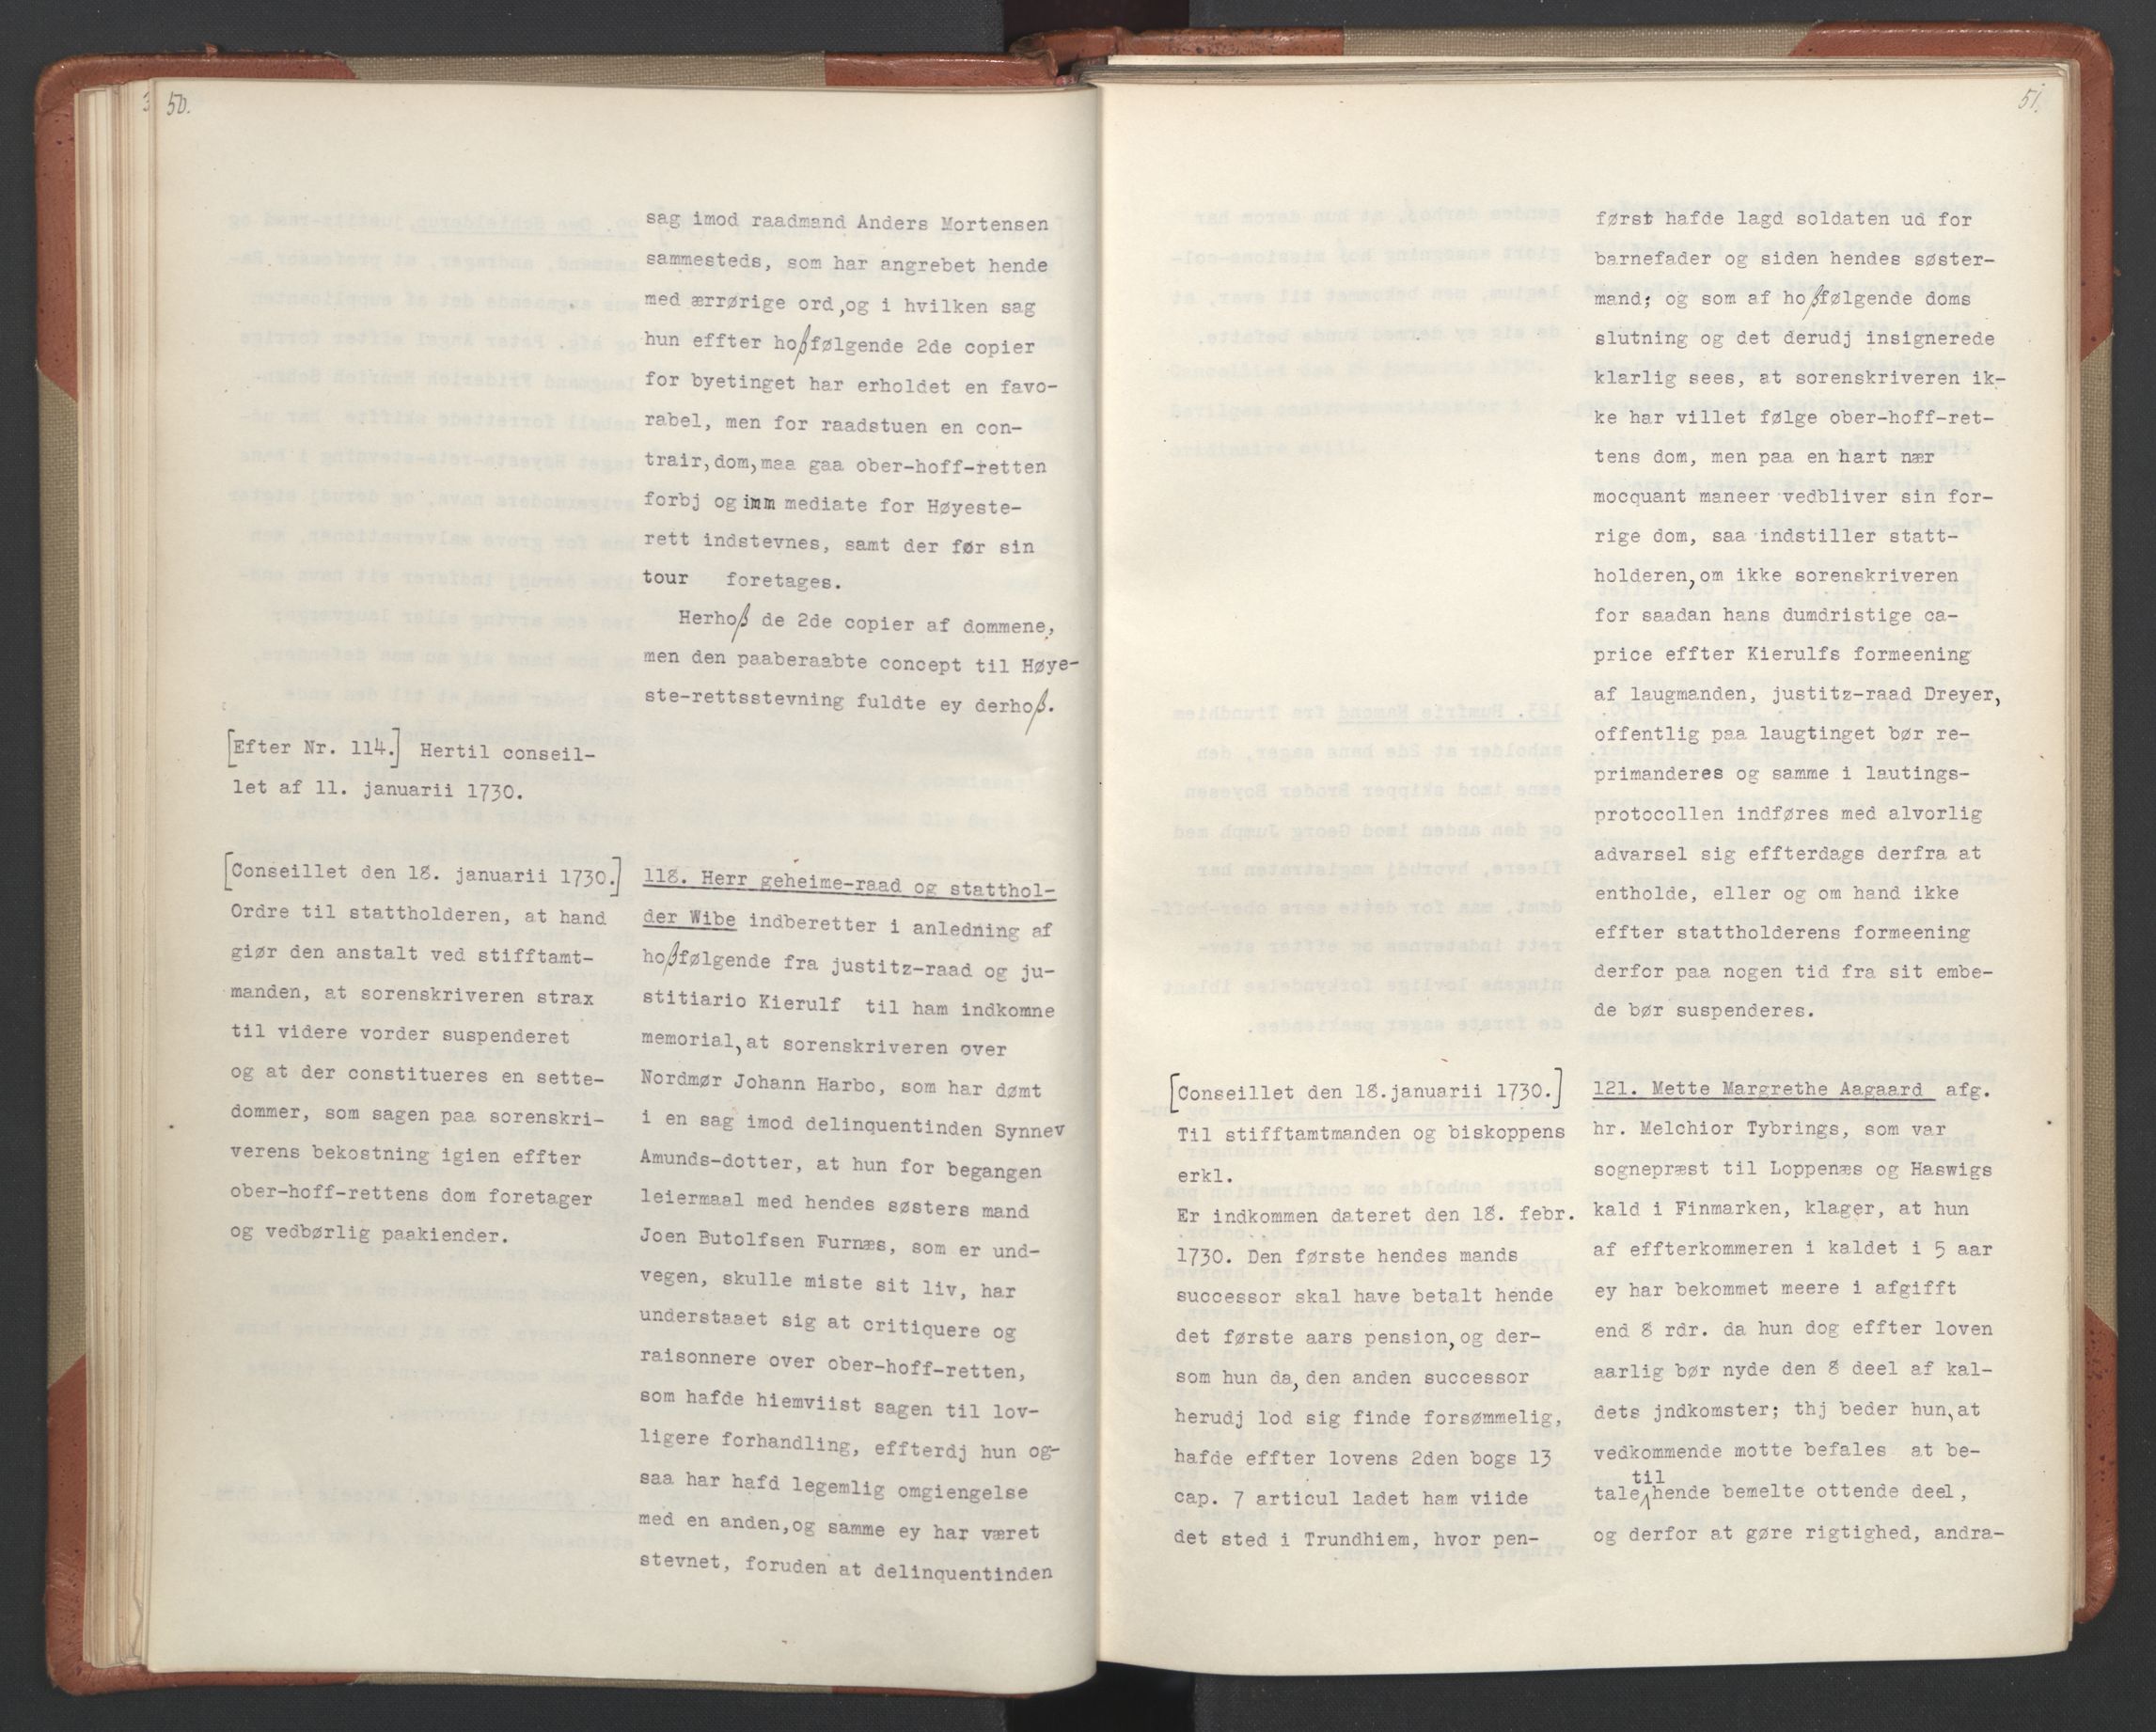 50.
sag imod raadmand Anders Mortensen
sammesteds, som har angrebet hende
med ærrørige ord,og i hvilken sag
hun effter hoßfølgende 2de copier
for byetinget har erholdet en favo-
rabel, men for raadstuen en con-
trair,dom,maa gaa ober-hoff-retten
forbj og imm mediate for Høyeste-
rett indstevnes, samt der før sin
tour foretages.
Herhoß de 2de copier af dommene,
men den paaberaabte concept til Høye-
ste-rettsstevning fuldte ey derhoß.
[Efter Nr. 114.] Hertil conseil-
let af 11. januarii 1730.
[Conseillet den 18. januarii 1730.]
Ordre til stattholderen, at hand
giør den anstalt ved stifftamt-
manden, at sorenskriveren strax
til videre vorder suspenderet
og at der constitueres en sette-
dommer, som sagen paa sorenskri-
verens bekostning igien effter
ober-hoff-rettens dom foretager
og vedbørlig paakiender.
118. Herr geheime-raad og statthol-
der Wibe indberetter i anledning af
hoßfølgende fra justitz-raad og ju-
stitiario Kierulf til ham indkomne
memorial,at sorenskriveren over
Nordmør Johann Harbo, som har dømt
i en sag imod delinquentinden Synnev
Amunds-dotter, at hun for begangen
leiermaal med hendes søsters mand
Joen Butolfsen Furnæs, som er und-
vegen, skulle miste sit liv, har
understaaet sig at critiquere og
raisonnere over ober-hoff-retten,
som hafde hiemviist sagen til lov-
ligere forhandling, effterdj hun og-
saa har hafd legemlig omgiengelse
med en anden,og samme ey har været
stevnet, foruden at delinquentinden
51.
først hafde lagd soldaten ud for
barnefader og siden hendes søster-
mand; og som af hoßfølgende doms
slutning og det derudj insignerede
klarlig sees, at sorenskriveren ik-
ke har villet følge ober-hoff-ret-
tens dom, men paa en hart nær
mocquant maneer vedbliver sin for-
rige dom, saa indstiller statt-
holderen,om ikke sorenskriveren
for saadan hans dumdristige ca-
price effter Kierulfs formeening
af laugmanden, justitz-raad Dreyer,
offentlig paa laugtinget bør re-
primanderes og samme i lautings-
protocollen indføres med alvorlig
advarsel sig effterdags derfra at
entholde, eller og om hand ikke
effter stattholderens formeening
derfor paa nogen tid fra sit embe-
de bør suspenderes.
[Conseillet den 18.januarii 1730.]
Til stifftamtmanden og biskoppens
erkl.
Er indkommen dateret den 18. febr.
1730. Den første hendes mands
successor skal have betalt hende
det første aars pension,og der-
som hun da,den anden successor
herudj lod sig finde forsømmelig,
hafde effter lovens 2den bogs 13
cap. 7 articul ladet ham viide
det sted i Trundhiem, hvor pen-
121. Mette Margrethe Aagaard afg.
hr. Melchior Tybrings, som var
sognepræst til Loppenæs og Haswigs
kald i Finmarken, klager, at hun
af effterkommeren i kaldet i 5 aar
ey har bekommet meere i afgifft
end 8 rdr. da hun dog effter loven
aarlig bør nyde den 8 deel af kal-
dets jndkomster; thj beder hun,at
vedkommende motte befales at be-
til
tale hende bemelte ottende deel,
og derfor at gøre rigtighed, andra-